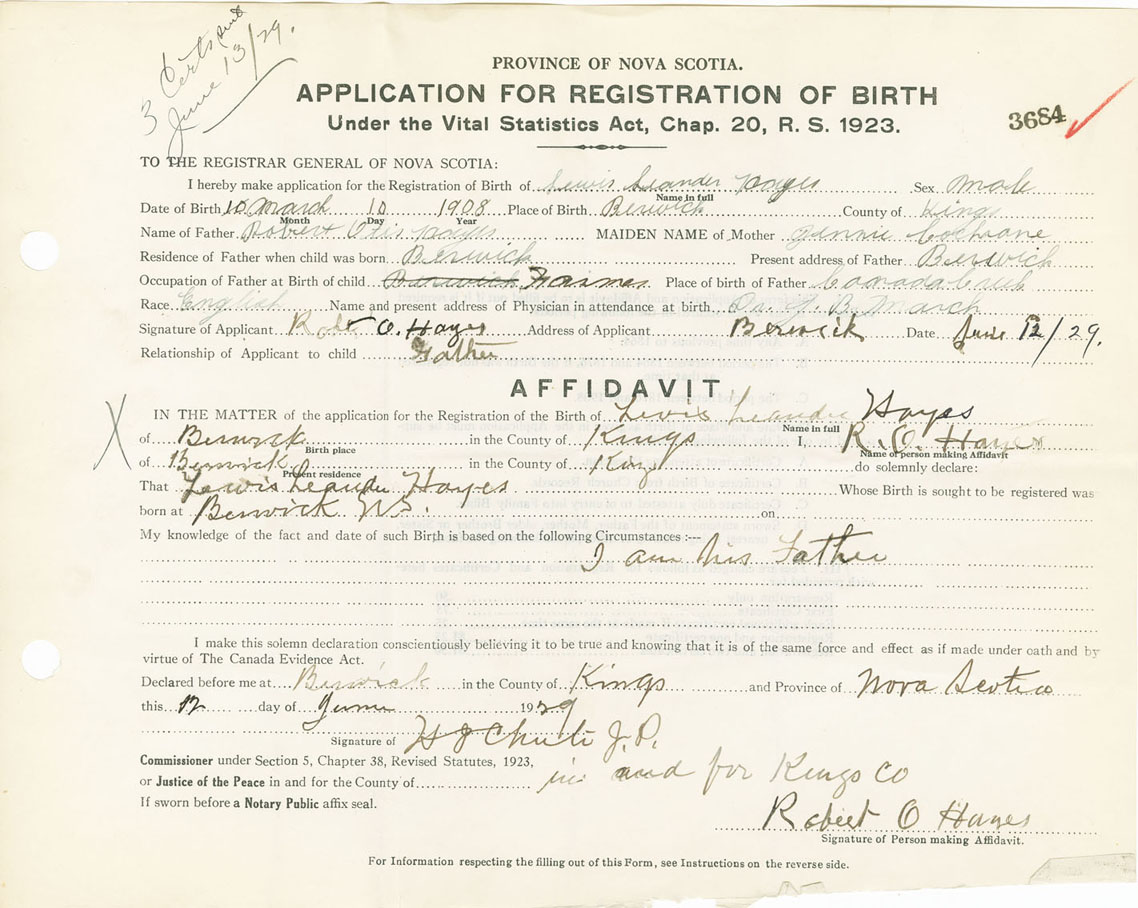 3 Certs sent
June 13/29.
PROVINCE OF NOVA SCOTIA.
APPLICATION FOR REGISTRATION OF BIRTH
Under the Vital Statistics Act, Chap. 20, R. S. 1923.
3684
TO THE REGISTRAR GENERAL OF NOVA SCOTIA:
I hereby make application for the Registration of Birth of Lewis Leander Hayes Sex Male
Name in full
Date of Birth 10 March 10 1908 Place of Birth Berwick County of Kings
Month Day Year
Name of Father Robert Otis Hayes MAIDEN NAME of Mother Jennie Cochrane
Residence of Father when child was born Berwick Present address of Father Berwick
Occupation of Father at Birth of child Berwick Farmer Place of birth of Father Canada
Race English Name and present address of Physician in attendance at birth Dr. B. March
Signature of Applicant Robt O. Hayes Address of Applicant Berwick Date June 12/29.
Relationship of Applicant to child Father
AFFIDAVIT
X
IN THE MATTER of the application for the Registration of the Birth of Lewis Leander Hayes
Name in full
of Berwick in the County of Kings I, R. O. Hayes
Birth place Name of person making Affidavit
of Berwick in the County of Kings do solemnly declare:
Present residence
That Lewis Leander Hayes Whose Birth is sought to be registered was
born at Berwick N.S. on
My knowledge of the fact and date of such Birth is based on the following Circumstances :---
I am his Father
I make this solemn declaration conscientiously believing it to be true and knowing that it is of the same force and effect as if made under oath and by
virtue of The Canada Evidence Act.
Declared before me at Berwick in the County of Kings and Province of Nova Scotia
this 12 day of June 1929
Signature of H J Chute J.P.
Commissioner under Section 5, Chapter 38, Revised Statutes, 1923,
or Justice of the Peace in and for the County of in and for Kings Co
If sworn before a Notary Public affix seal.
Robert O Hayes
Signature of Person making Affidavit.
For Information respecting the filling out of this Form, see Instructions on the reverse side.